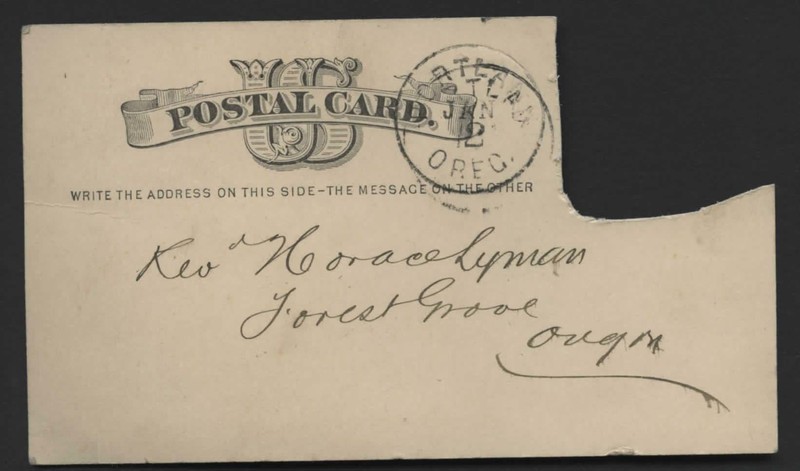 US
POSTAL CARD.
WRITE THE ADDRESS ON THIS SIDE-THE MESSAGE ON THE OTHER
JAN
12
OREG.
Revd Horace Lyman
Forest Grove
Oregon